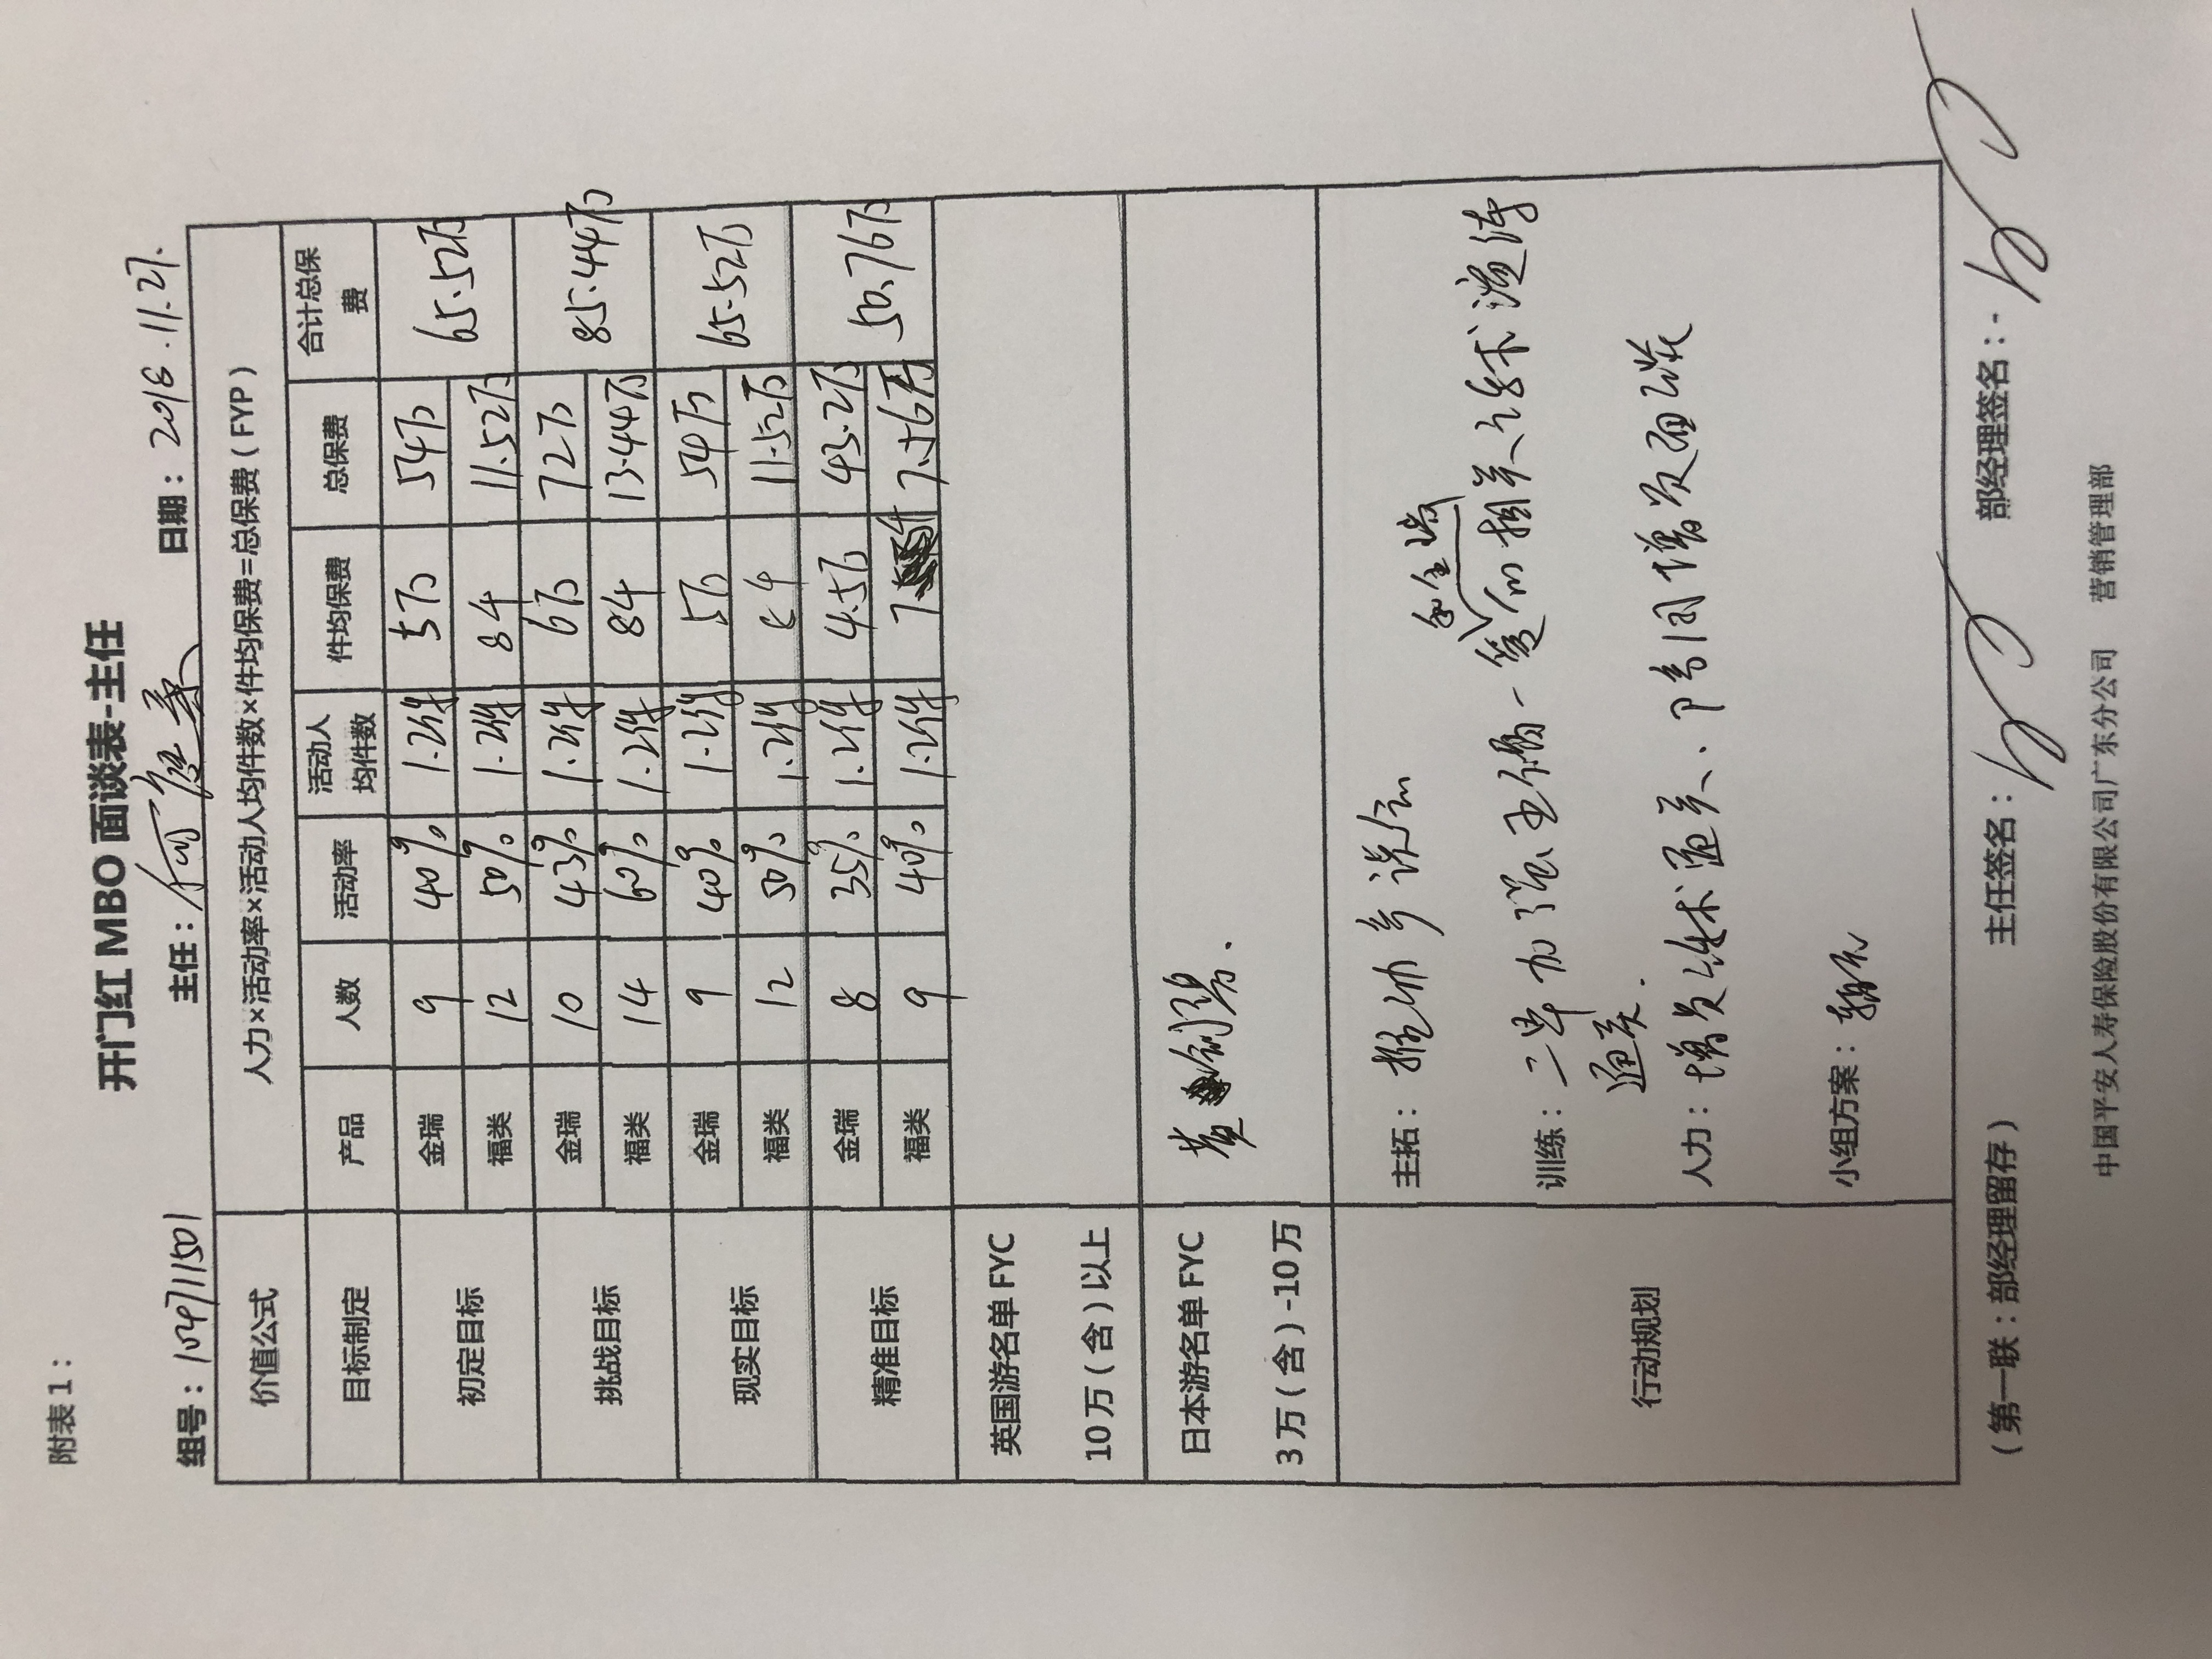 附表 1：
开门红 MBO 面谈表-主任
组号：104711501 主任：何 日期：2018.11.27.
价值公式 人力×活动率×活动人均件数×件均保费=总保费（FYP）
目标制定 产品 人数 活动率 活动人均件数 件均保费 总保费 合计总保费
初定目标 金瑞 9 40% 1.2件 5万 54万 65.52万
福类 12 50% 1.2件 84 11.52万
挑战目标 金瑞 10 43% 1.2件 6万 72万 85.44万
福类 14 60% 1.2件 84 13.44万
现实目标 金瑞 9 40% 1.2件 5万 54万 65.52万
福类 12 50% 1.2件 11.52万
精准目标 金瑞 8 35% 1.2件 4.5万 43.2万 50.76万
福类 9 40% 1.2件 7 7.56万
英国游名单 FYC
10 万（含）以上
日本游名单 FYC 黄
3 万（含）-10 万
行动规划
主拓：推动乡说会
训练：二早加强主顾 的相关话术演练
通关.
人力：增员话术通关、
小组方案：
（第一联：部经理留存） 主任签名： 部经理签名：
中国平安人寿保险股份有限公司广东分公司 营销管理部